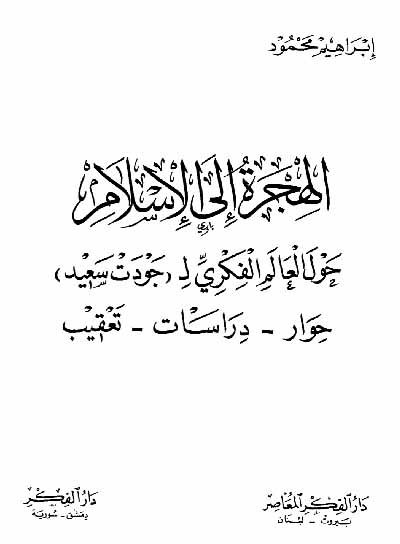 إِبْرَاهِيْم مَحْمُود
الهِجْرَةُ إِلَى الإِسْلَامِ
حَوْلَ الْعَالَمِ الْفِكْرِيِّ لِـ (جَوْدَتْ سَعِيْد)
حِوَار - دِرَاسَات - تَعْقِيْب
دَارُ الفِكْرِ المُعَاصِر
بَيْرُوت - لُبْنَان
دَارُ الفِكْرِ
دِمَشْق - سُورِيَة